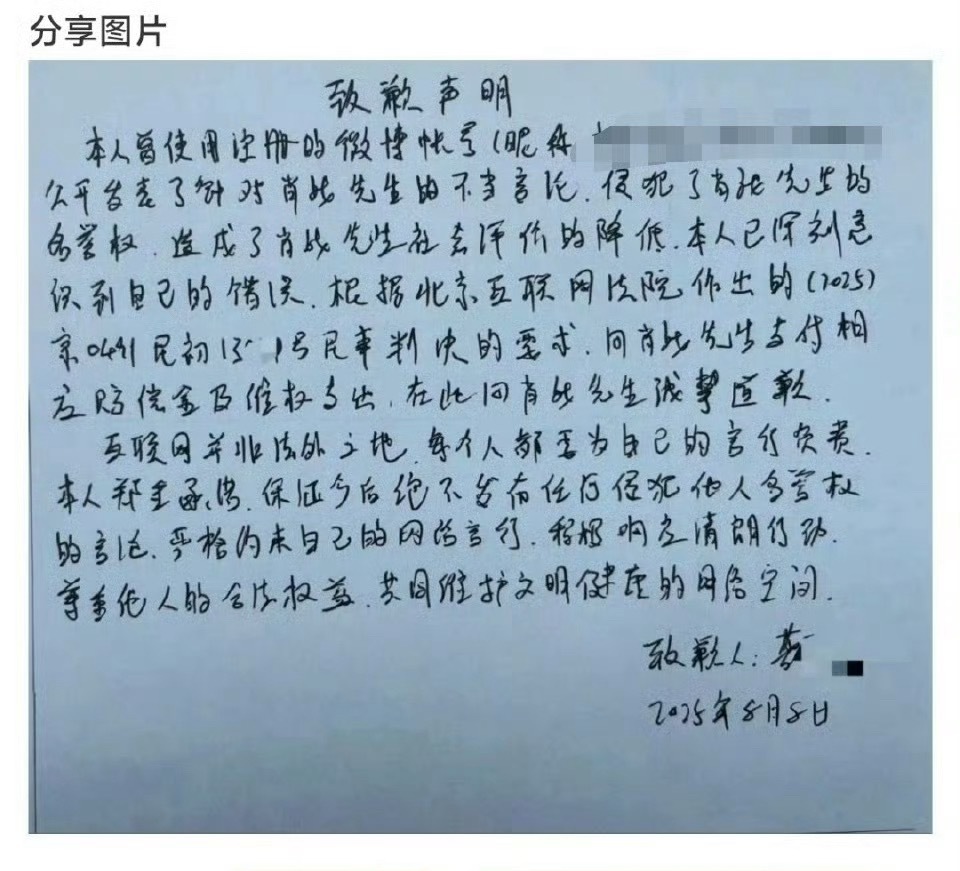 分享图片
致歉声明
本人曾使用注册的微博帐号(昵称
公开发表了针对肖战先生的不当言论,侵犯了肖战先生的
名誉权,造成了肖战先生社会评价的降低.本人已深刻意
识到自己的错误.根据北京互联网法院作出的(2025)
京0491民初13 1号民事判决的要求,向肖战先生支付相
应赔偿金及维权支出,在此向肖战先生诚挚道歉.
互联网并非法外之地,每个人都要为自己的言行负责.
本人郑重承诺,保证今后绝不发布任何侵犯他人名誉权
的言论,严格约束自己的网络言行,积极响应清朗行动.
尊重他人的合法权益,共同维护文明健康的网络空间.
致歉人:
2025年8月8日